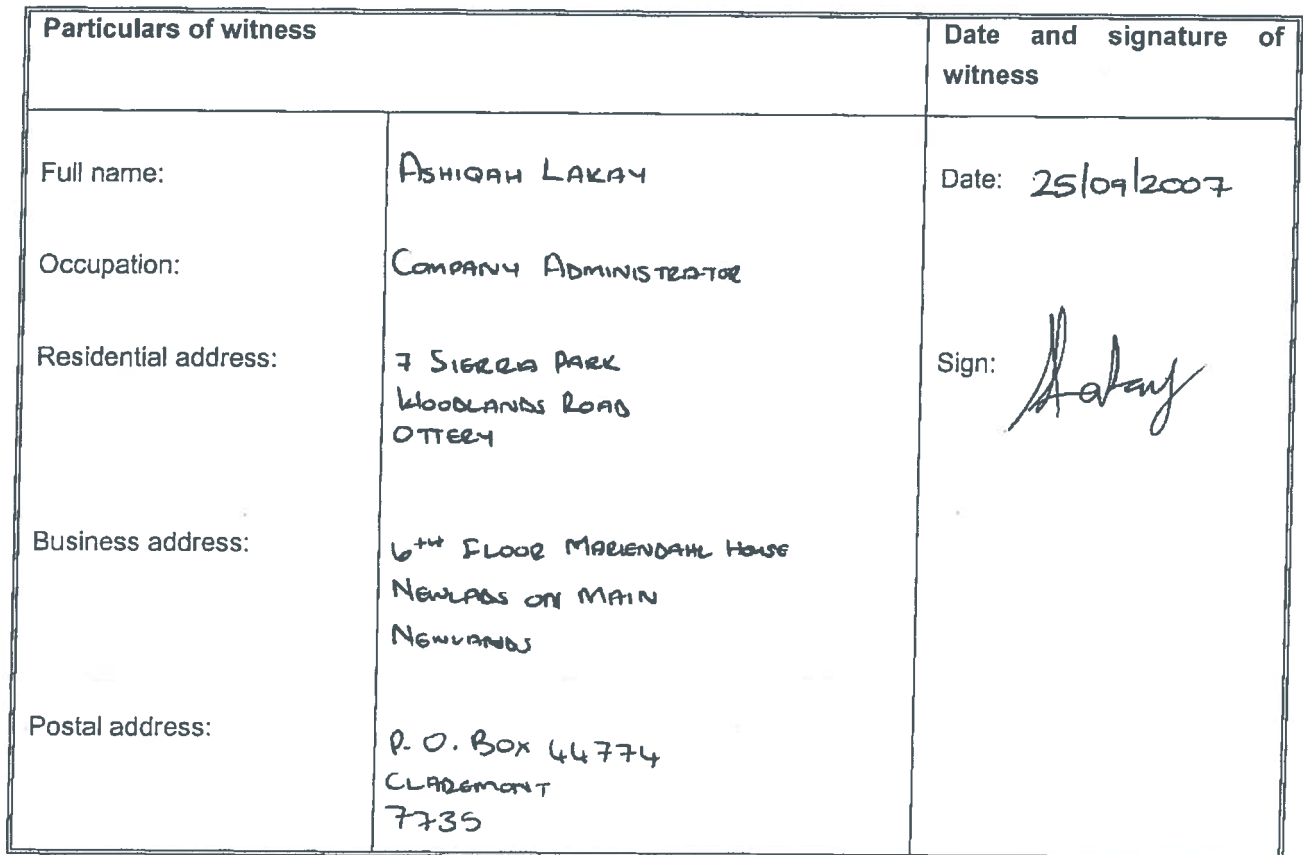 Particulars of witness
Date and signature of
witness
Full name:
ASHIQAH LAKAY
Date: 25/09/2007
Occupation:
COMPANY ADMINISTRATOR
Residential address:
7 SIERRA PARK
WOODLANDS ROAD
OTTERY
Sign: ALakay
Business address:
6TH FLOOR MARIENDAHL HOUSE
NEWLADS ON MAIN
NEWLANDS
Postal address:
P.O. BOX 44774
CLAREMONT
7735